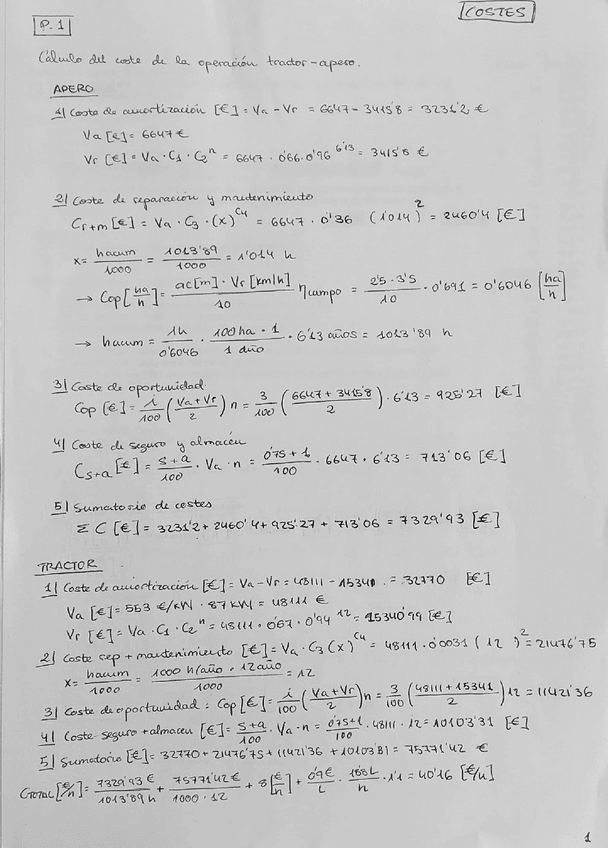 P.1
COSTES
Cálculo del coste de la operación tractor-apero.
APERO
1) Coste de amortización [€] = Va - Vr = 6647 - 3415'8 = 3231'2 €
Va [€] = 6647 €
Vr [€] = Va · C1 · C2^n = 6647 · 0'66 · 0'96^6'13 = 3415'8 €
2) Coste de reparación y mantenimiento
Cr+m [€] = Va · C3 · (x)^C4 = 6647 · 0'36 (1'014)^2 = 2460'4 [€]
x = hacum/1000 = 1013'89/1000 = 1'014 h
→ Cop [ha/h] = ac[m] · Vr [km/h]/10 ηcampo = 2'5 · 3'5/10 · 0'691 = 0'6046 [ha/h]
→ hacum = 1h/0'6046 · 100ha · 1/1 año · 6'13 años = 1013'89 h
3) Coste de oportunidad:
Cop [€] = i/100 (Va+Vr/2) n = 3/100 (6647 + 3415'8/2) · 6'13 = 925'27 [€]
4) Coste de seguro y almacén
Cs+a [€] = s+a/100 · Va · n = 0'75 + 1/100 · 6647 · 6'13 = 713'06 [€]
5) Sumatorio de costes
Σ C [€] = 3231'2 + 2460'4 + 925'27 + 713'06 = 7329'93 [€]
TRACTOR
1) Coste de amortización [€] = Va - Vr = 48111 - 15341 = 32770 [€]
Va [€] = 553 €/kW · 87 kW = 48111 €
Vr [€] = Va · C1 · C2^n = 48111 · 0'67 · 0'94^12 = 15340'99 [€]
2) Coste rep + mantenimiento [€] = Va · C3 (x)^C4 = 48111 · 0'0031 (12)^2 = 21476'75
x = hacum/1000 = 1000 h/año · 12 año/1000 = 12
3) Coste de oportunidad: Cop [€] = i/100 (Va+Vr/2) n = 3/100 (48111 + 15341/2) 12 = 11421'36
4) Coste seguro + almacen [€] = s+a/100 · Va · n = 0'75+1/100 · 48111 · 12 = 10103'31 [€]
5) Sumatorio [€] = 32770 + 21476'75 + 11421'36 + 10103'31 = 75771'42 €
CTOTAL [€/h] = 7329'93 €/1013'89 h + 75771'42 €/1000 · 12 + 8 [€/h] + 0'9 €/L · L/h · 1'1 = 40'16 [€/h]
1